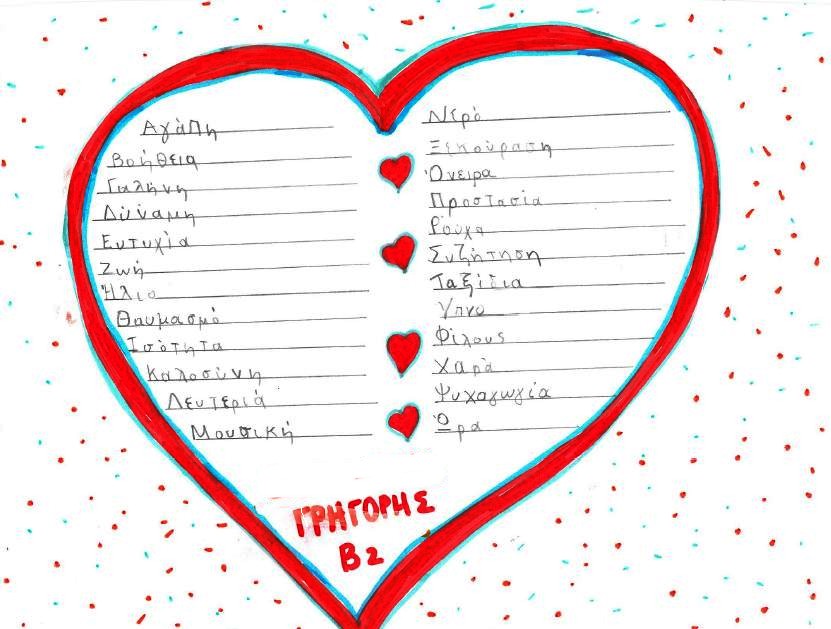 Αγάπη
Βοήθεια
Γαλήνη
Δύναμη
Ευτυχία
Ζωή
Ήλιο
Θαυμασμό
Ισότητα
Καλοσύνη
Λευτεριά
Μουσική
Νερό
Ξεκούραση
Όνειρα
Προστασία
Ρούχα
Συζήτηση
Ταξίδια
Υπνο
Φίλους
Χαρά
Ψυχαγωγία
Ώρα
ΓΡΗΓΟΡΗΣ
Β2